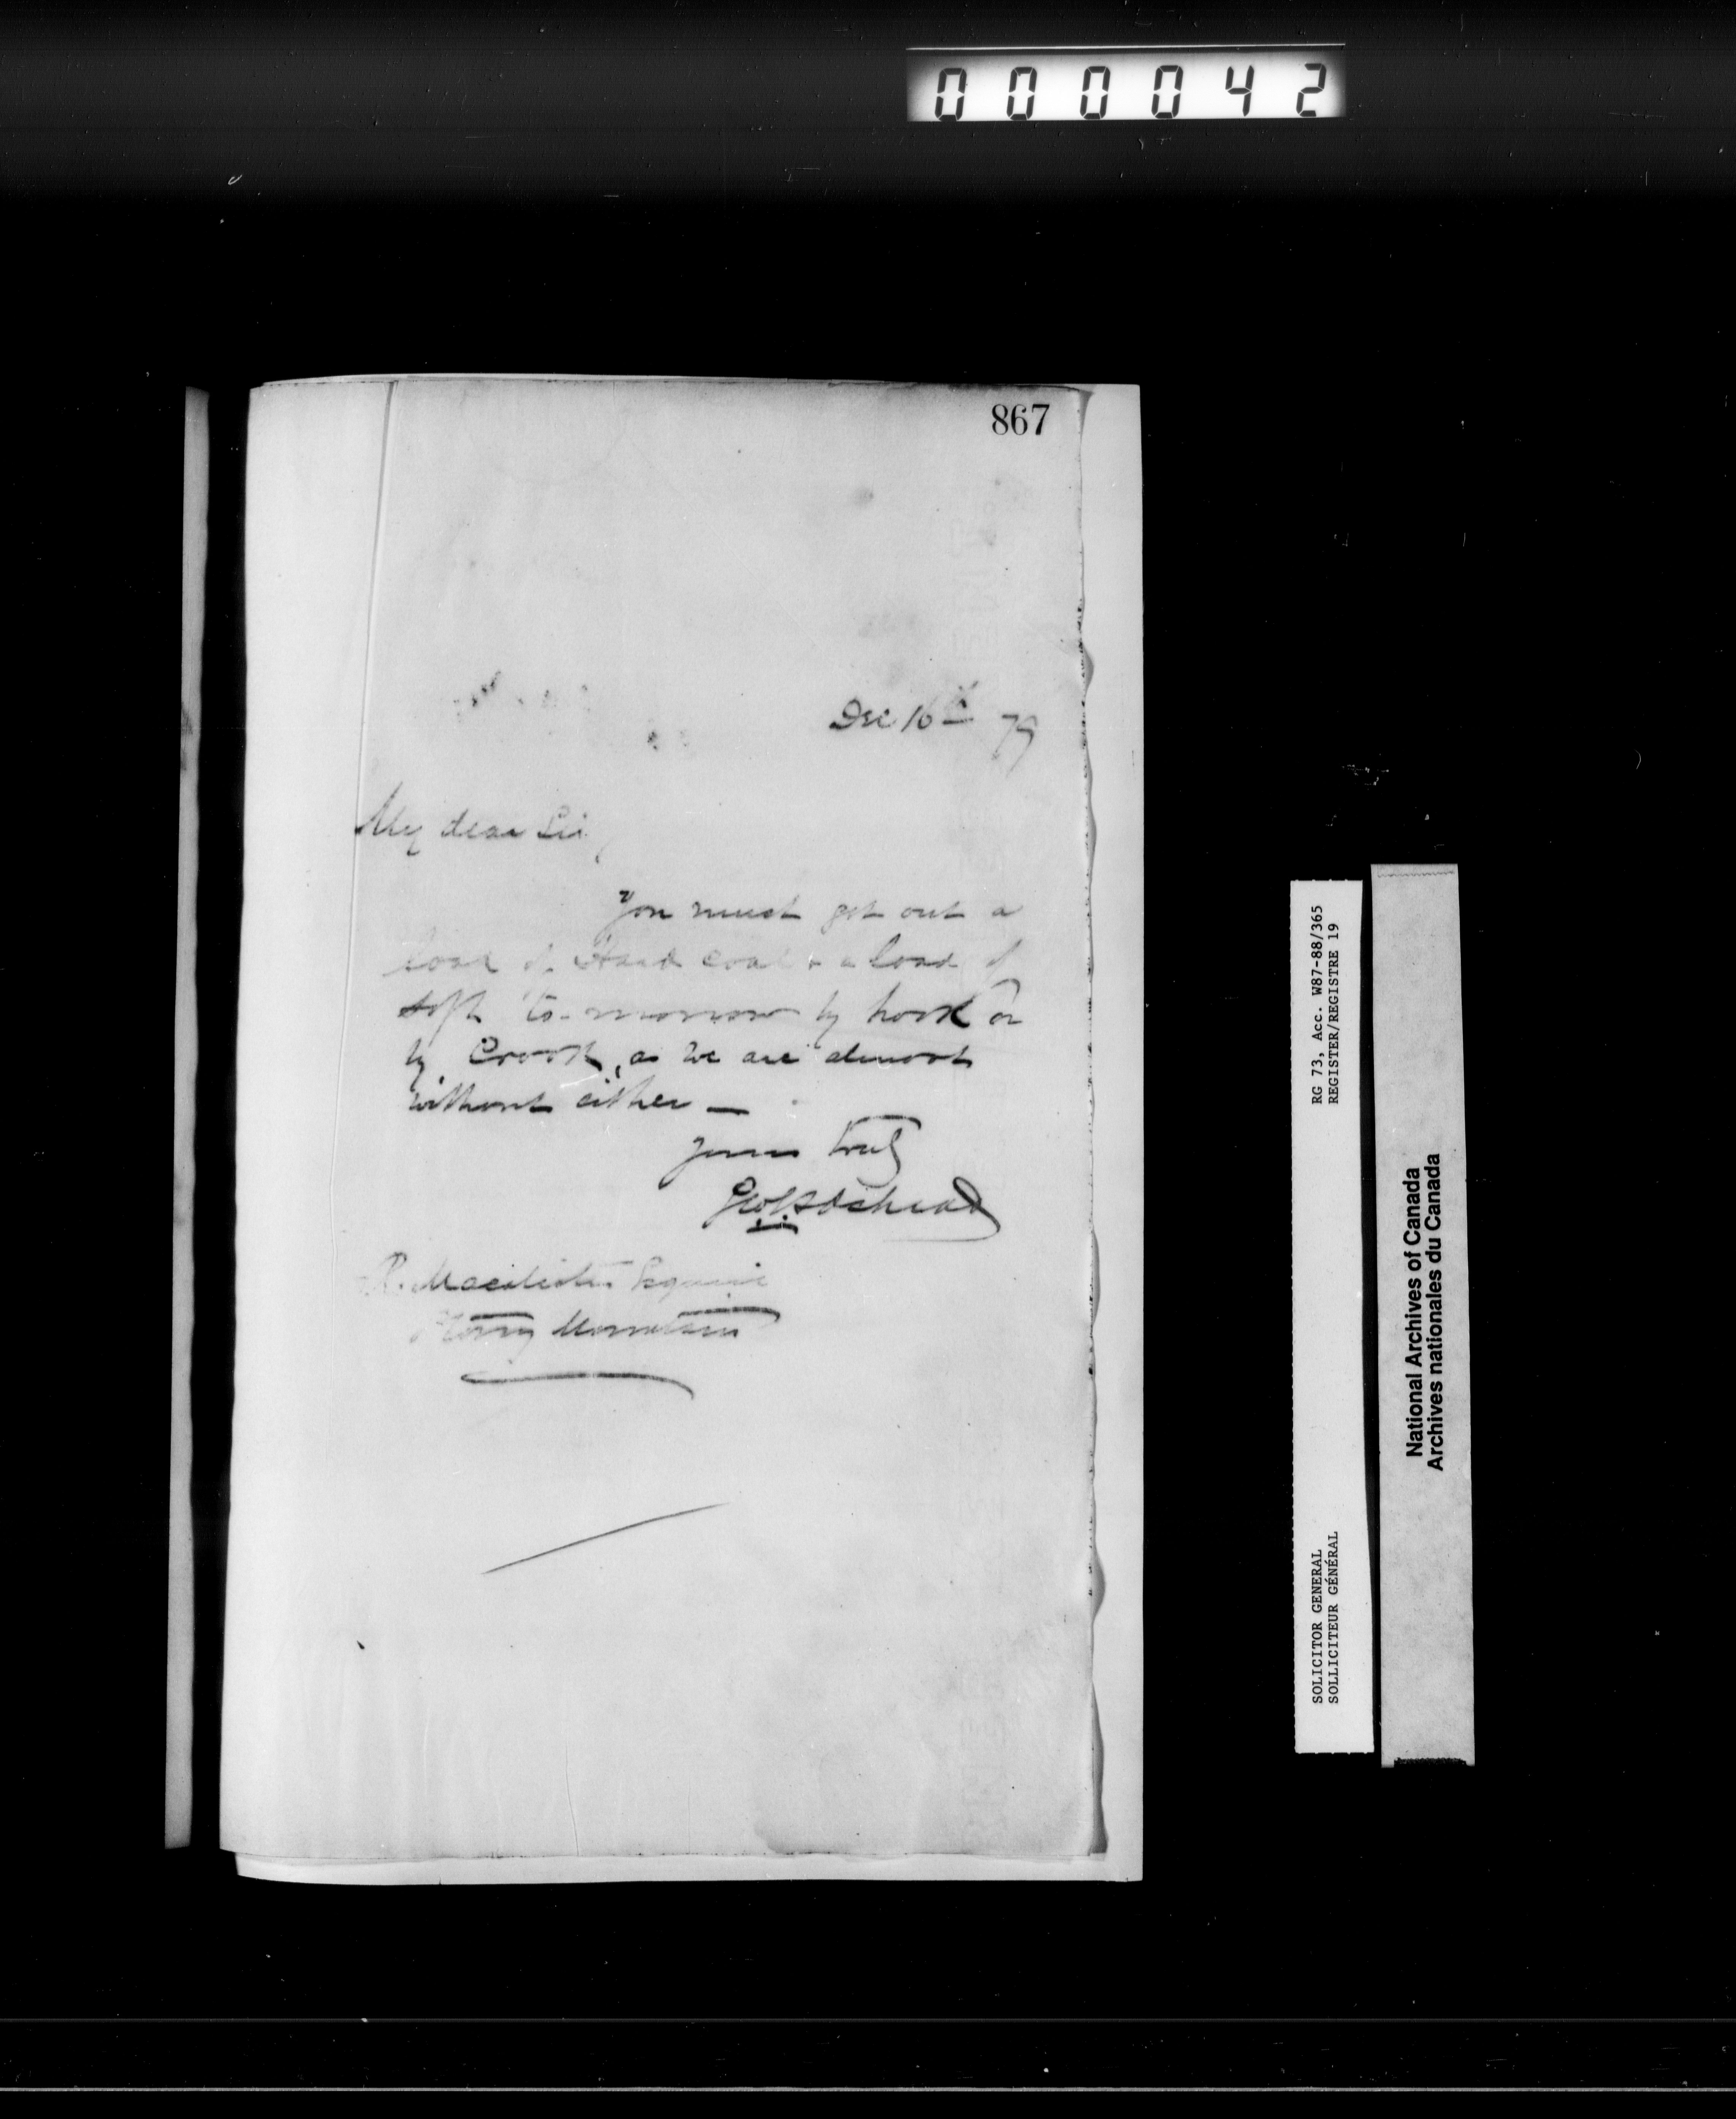 000042
867
Dec 16th 79
My dear Sir,
You must get out a
load of Hard coal & a load of
soft to-morrow by hook or
by Crook, as we are almost
without either —
Yours truly
Geo
R. Esquire
Stony Mountain
RG 73, Acc. W87-88/365
REGISTER/REGISTRE 19
SOLICITOR GENERAL
SOLLICITEUR GÉNÉRAL
National Archives of Canada
Archives nationales du Canada